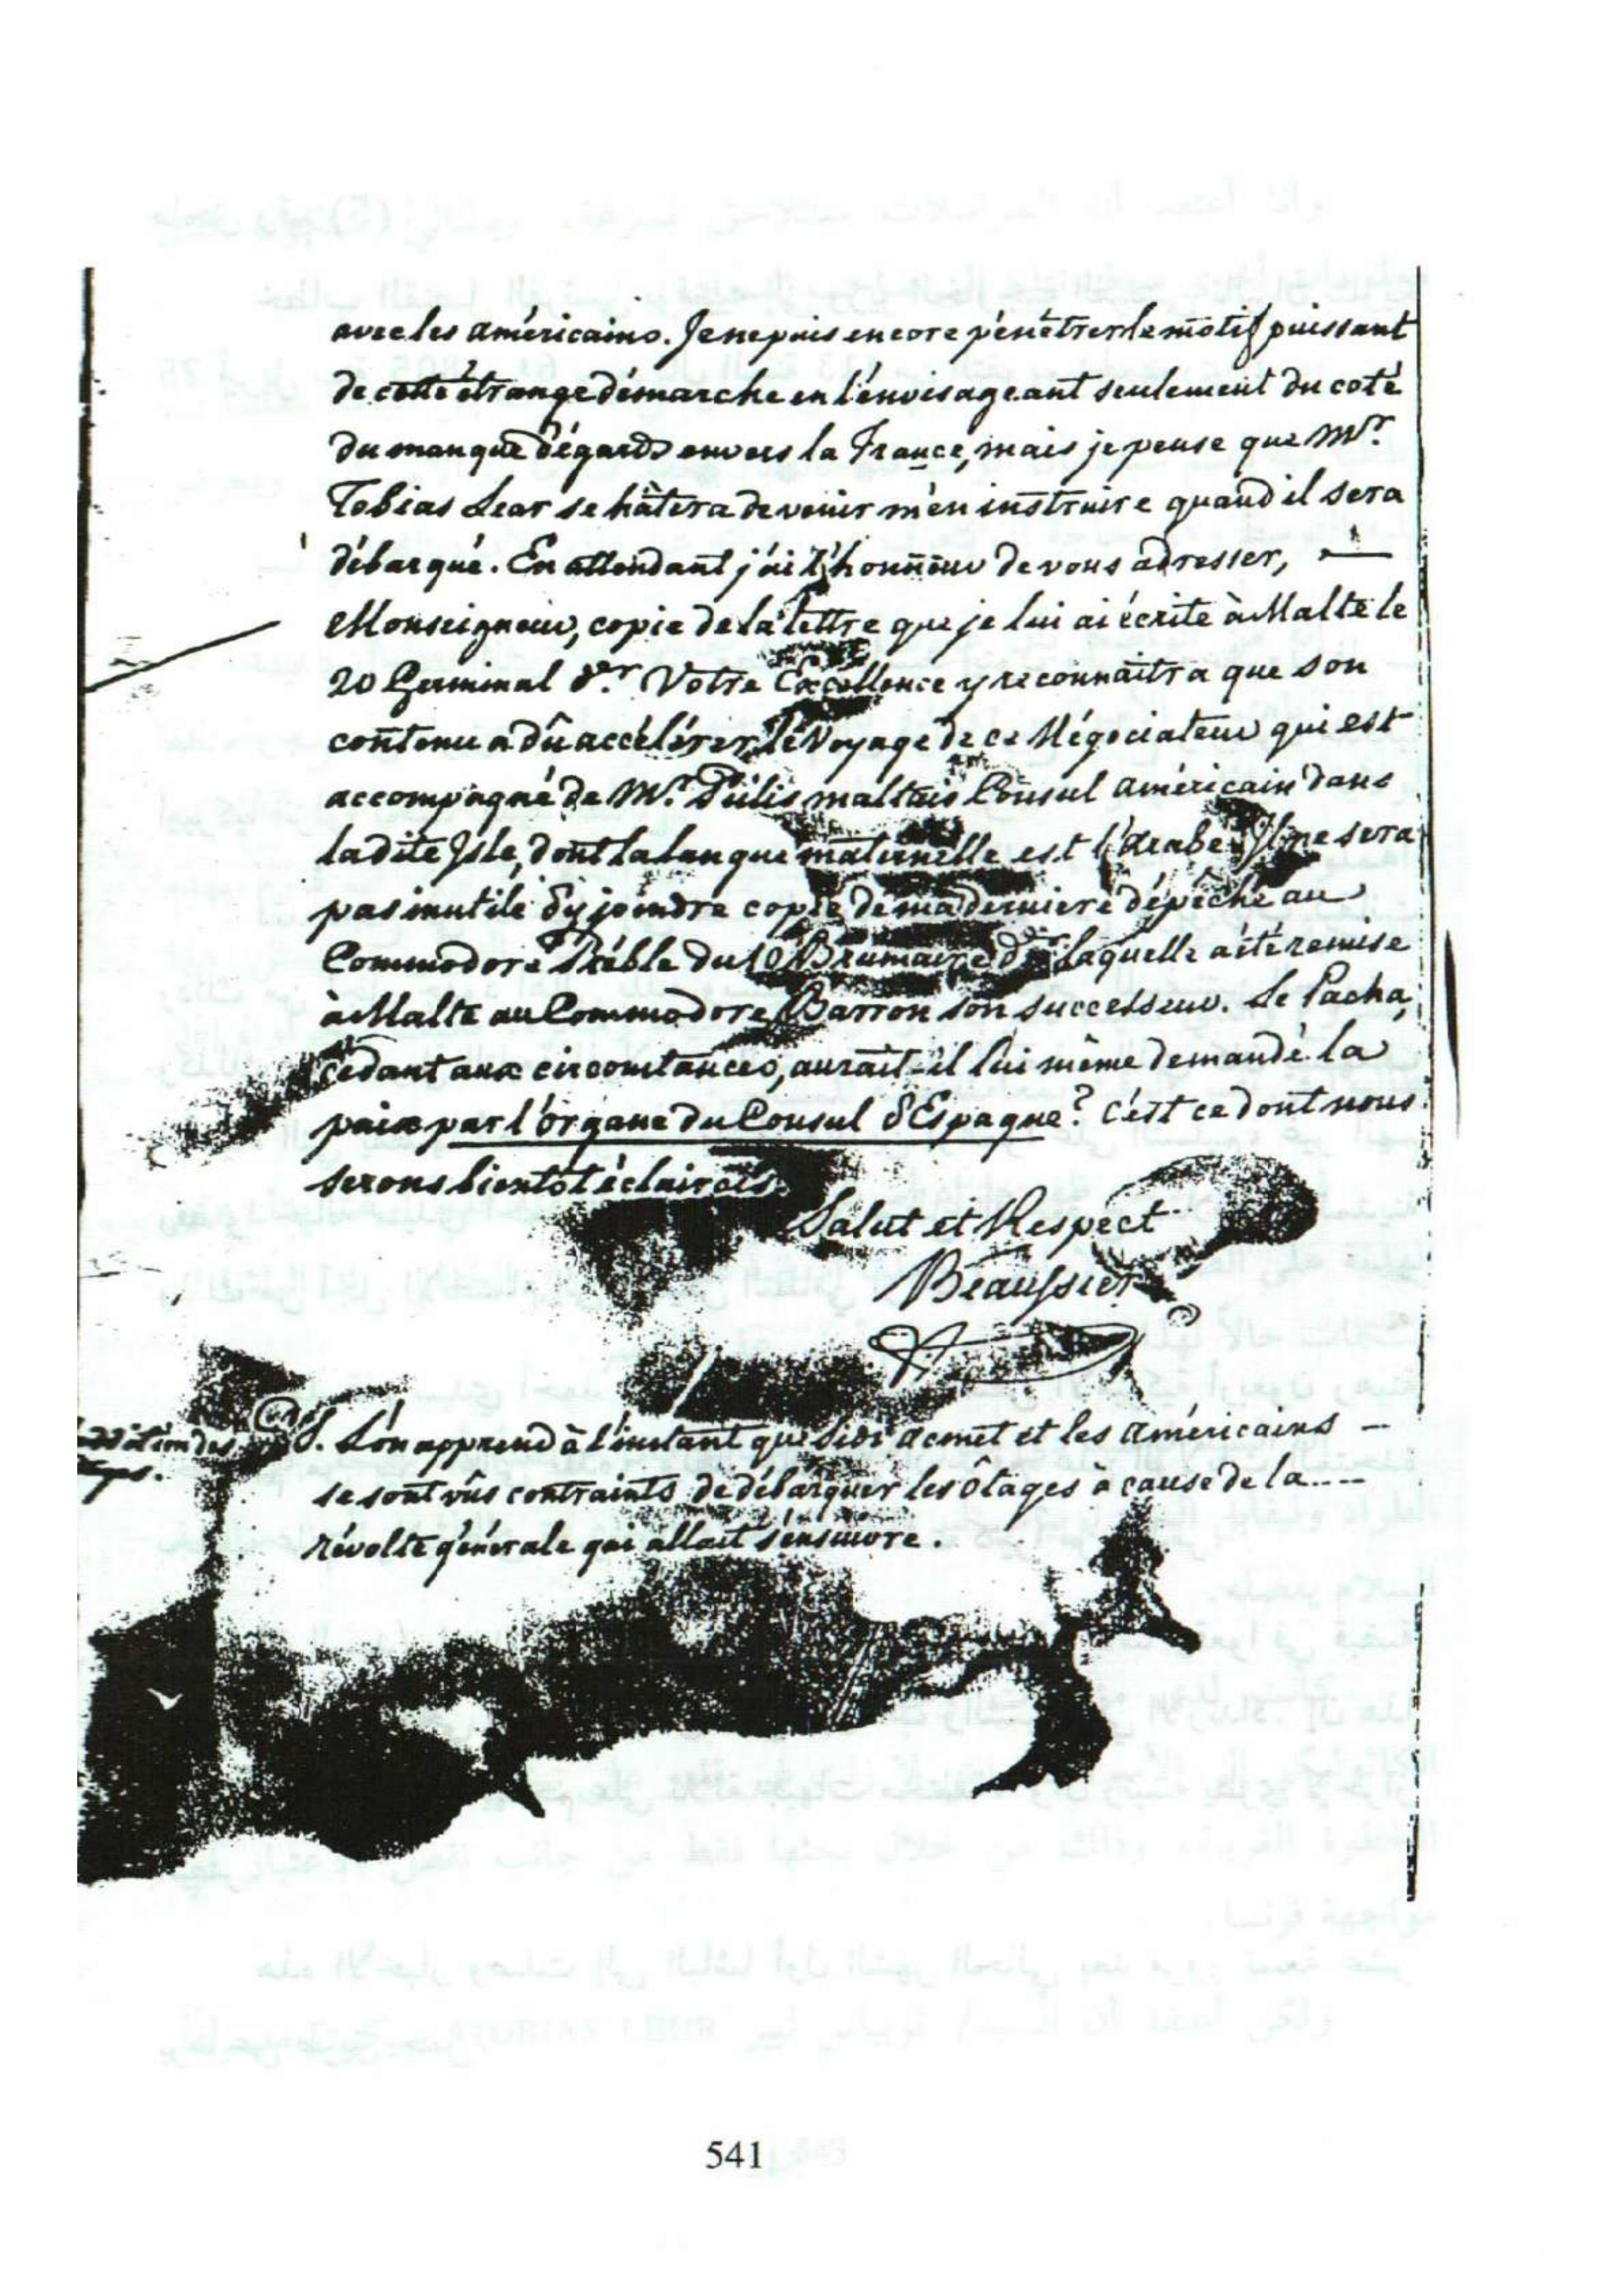 avec les américains. Je ne puis encore pénétrer le motif puissant
de cette étrange démarche en l'envisageant seulement du coté
du manque d'égards envers la France, mais je pense que Mr.
Tobias Lear se hâtera de venir m'en instruire quand il sera
débarqué. En attendant j'ai l'honneur de vous adresser, —
Monseigneur, copie de la lettre que je lui ai écrite à Malte le
20 Germinal dr. Votre Excellence y reconnaîtra que son
contenu a dû accélérer le voyage de ce Négociateur qui est
accompagné de Mr. Pulis maltais Consul américain dans
la dite Isle, dont la langue maternelle est l'Arabe. Il ne sera
pas inutile d'y joindre copie de ma derniere dépêche au
Commodore Préble du 10 Brumaire dr. laquelle a été remise
à Malte au Commodore Barron son successeur. Le Pacha,
cédant aux circonstances, aurait-il lui même demandé la
paix par l'organe du Consul d'Espagne? c'est ce dont nous
serons bientot éclaircis.
Salut et Respect
Beaussier
P.S. L'on apprend à l'instant que Sidi acmet et les américains —
se sont vûs contraints de débarquer les ôtages à cause de la ....
révolte générale qui allait s'ensuivre.
541